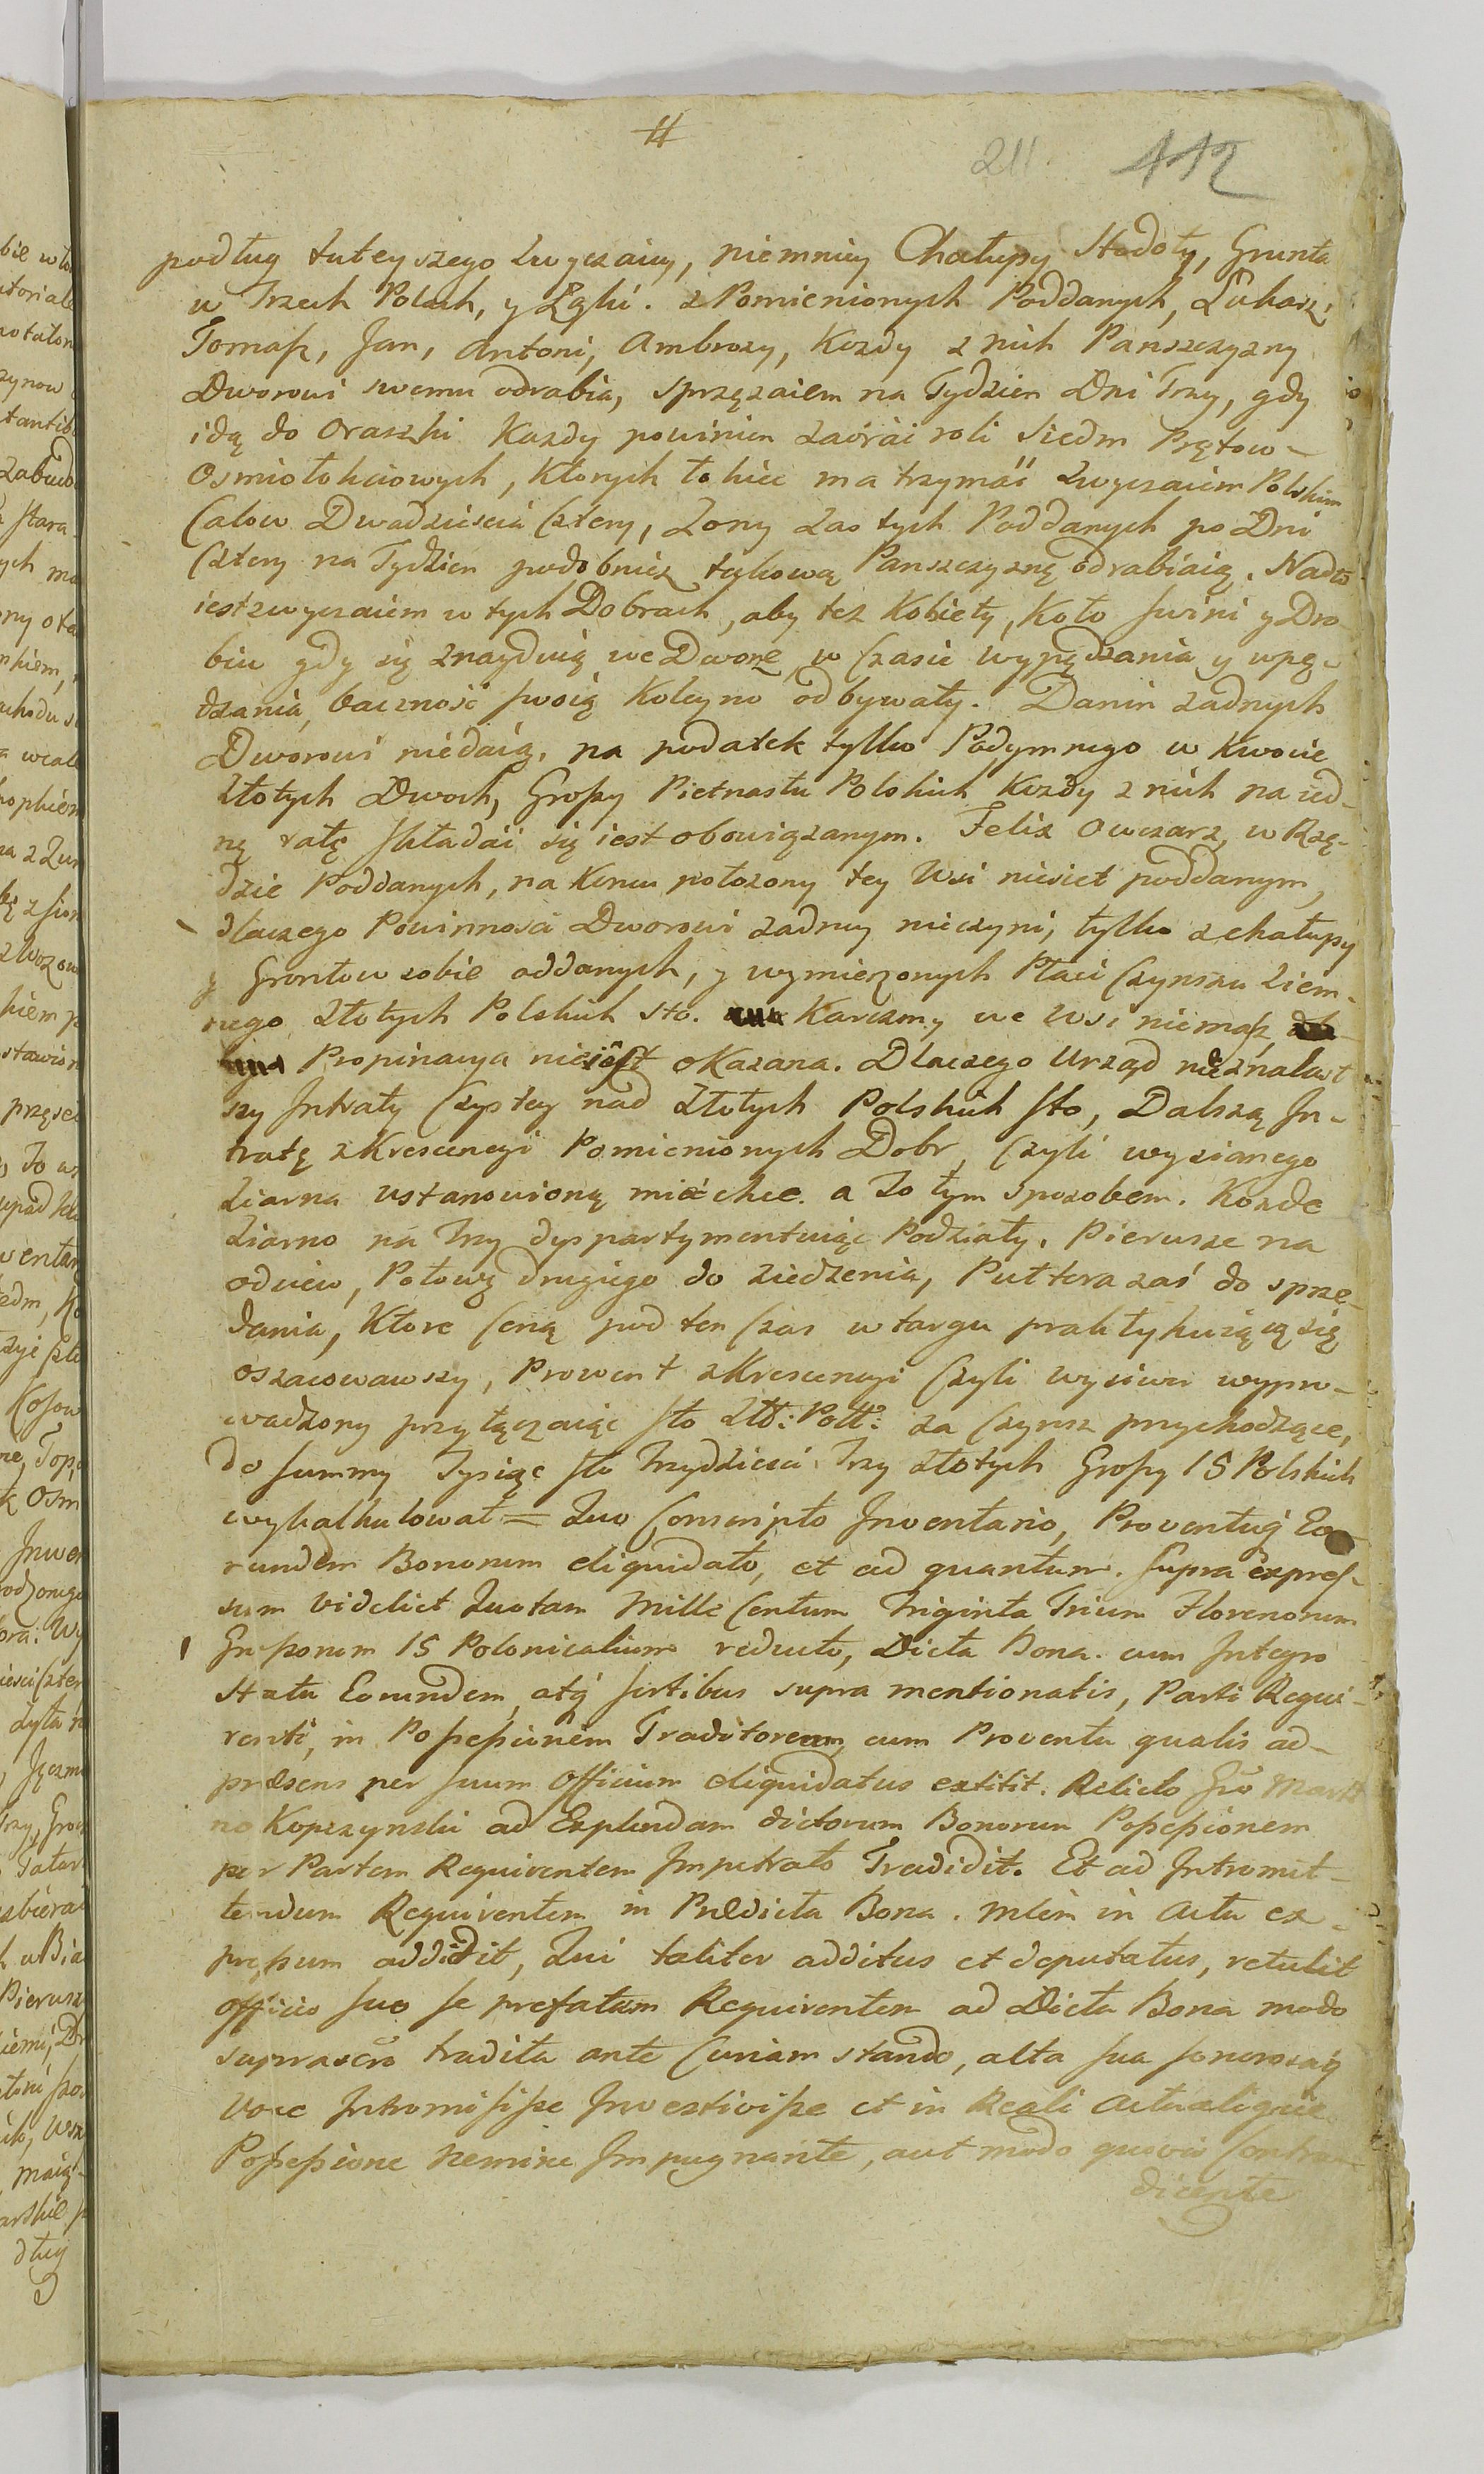 #
211 112
podług tuteyszego zwyczaiu, niemniey Chałupy Stodoły, Grunta
w Trzech Polach, y Łąki. z Pomienionych Poddanych, Łukasz,
Tomaſz, Jan, Antoni, Ambrozy, Kozdy z nich Panszczyzny
Dworowi swemu odrabia, sprzęzaiem na Tydzien Dni Trzy, gdy
idą do Oraszki Kazdy powinien zaorać roli Siedm Prętow
Osmiołokciowych, Ktorych łokiec ma trzymáć zwyczaiem Polskim
Calow Dwadziescia Cztery, Zony zas tych Poddanych po Dni
Cztery na Tydzien podobniez takową Panszczyznę odrabiaią. Nadto
iest zwyczaiem w tych Dobrach, aby tez Kobiety, Koło Swini y Dro-
biu gdy się znayduią we Dworze, w Czasie wypędzania y wpę-
dzania, bacznosć swoią Koleyno odbywały. Danin zadnych
Dworowi niedaią, na podatek tylko Podymnego w Kwocie
złotych Dwoch, Groſzy Pietnastu Polskich Kozdy z nich na ied-
nę ratę składać się iest obowiązanym. Felix Owczarz, w Rzę-
dzie Poddanych, na Koncu połozony tey Wsi nieiest poddanym,
dlaczego Powinnosci Dworowi zadney nieczyni, tylko z chałupy
y Grontow sobie oddanych, y wymierzonych Płaci Czynszu ziem-
nego złotych Polskich sto. Karczmy we Wsi niemaſz,
Propinacya nieiest okazana. Dlaczego Urząd nieznalazł
szy Intraty Czystey nad złotych Polskich sto, Dalszą In-
tratę z Krescencyi Pomienionych Dobr, Czyli wysianego
ziarna ustanowioną mieć chce. a To tym sposobem. Kozde
ziarno na Trzy dyspartymentuiąc Podziały. Pierwsze na
odsiew, Połowę drugiego do ziedzenia, Pułtora zaś do sprze-
dania, Ktore Ceną pod ten Czas w targu praktykuiącą się
oszacowawszy, Prowent z Krescencyi Czyli wysiewu wypro-
wadzony przyłączaiąc sto Złł: Poll: za Czynsz przychodzące,
do summy Tysiąc sto Trzydziesci Trzy złotych Groſzy 15 Polskich
wykalkulował = Quo Conscripto Inventario, Proventuq́ Eo-
rundem Bonorum eliquidato, et ad quantum. Supra expreſ-
sum videlict Quotam Mille Centum Triginta Trium Florenorum
Groſſorum 15 Polonicalium reducto, Dicta Bona. cum Integro
Statu Eorundem, atq́ sortibus supra mentionatis, Parti Requi-
renti, in Poſſeſſionem Traditoream, cum Proventu qualis ad-
præsens per suum Officium eliquidatus extitit. Relicto Gro Marti
no Kopczynski ad Explendam dictorum Bonorum Poſſeſſionem
per Partem Requirentem Impetrato Tradidit. Et ad Intromit-
tendum Requirentem in Prædicta Bona. Mlem in Actu ex-
preſſum addidit, Qui taliter additus et deputatus, retulit
Officio suo se prefatum Requirentem ad Dicta Bona modo
suprascro tradita ante Curiam stando, alta sua sonorosaq́
Voce Intromiſiſſe Investiviſſe et in Reali Actualiquie
Poſſeſſione Nemine Impugnante, aut modo quovis Contra-
dicente